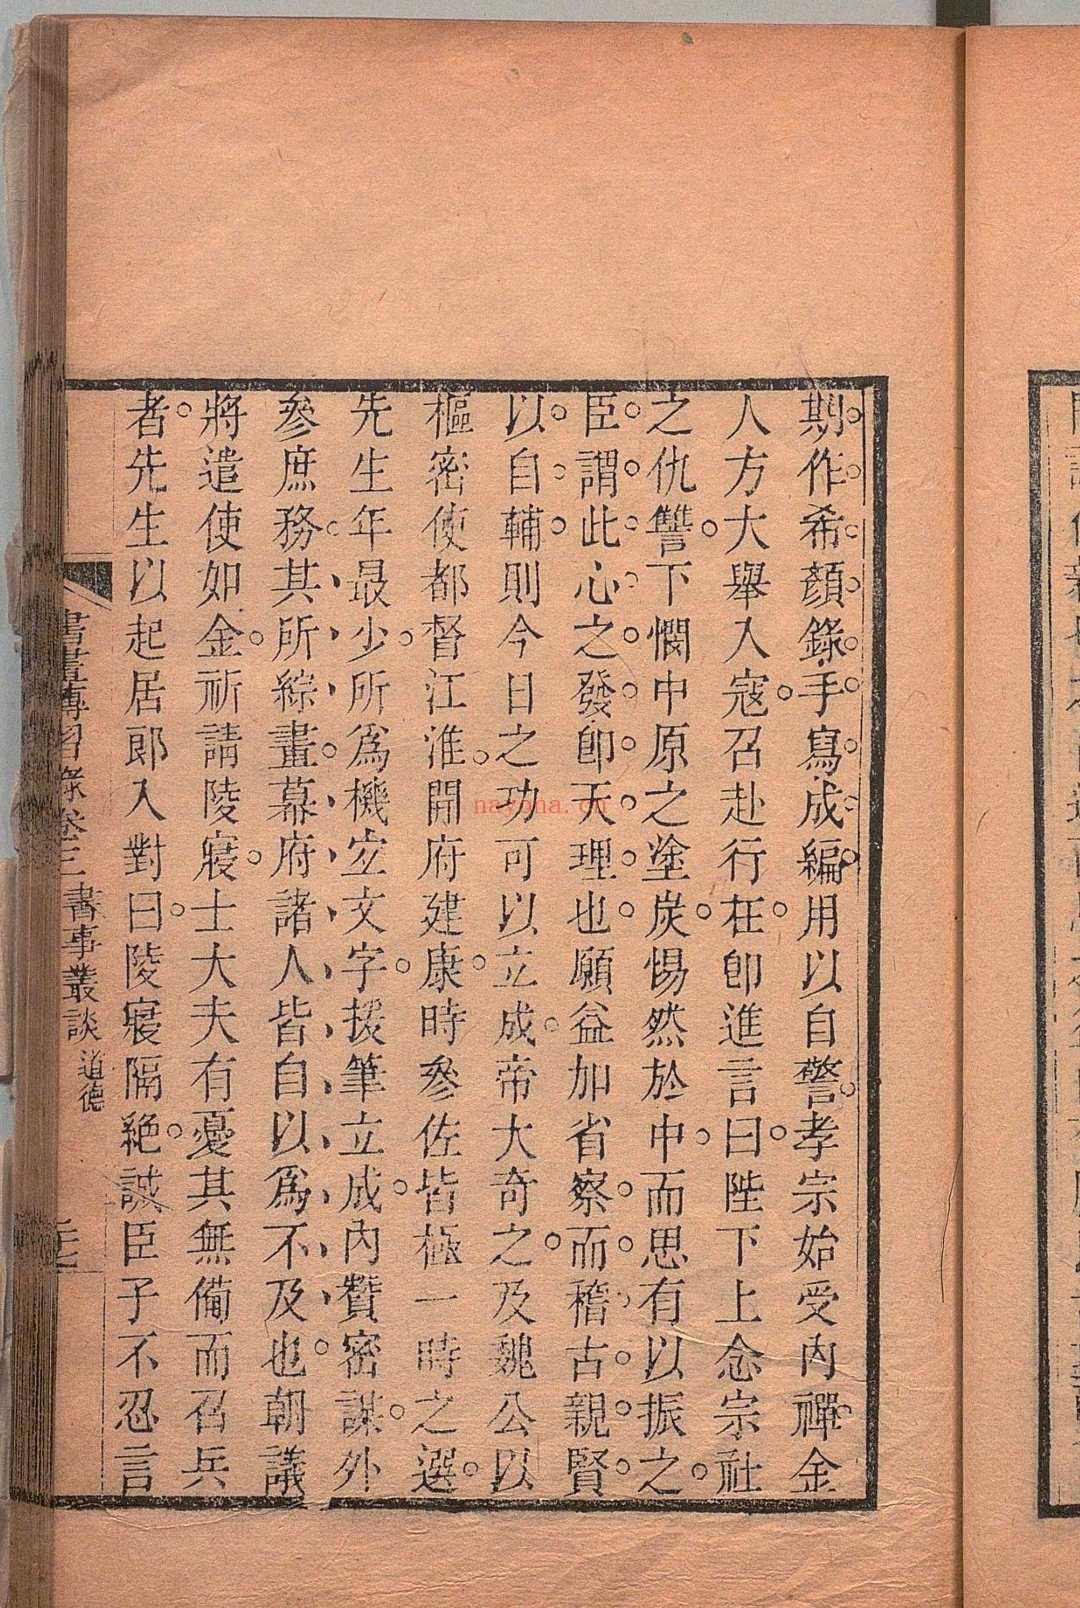 期作希顏錄手寫成編用以自警孝宗始受內禪金
人方大舉入寇召赴行在即進言曰陛下上念宗社
之仇讐下憫中原之塗炭惕然於中而思有以振之
臣謂此心之發即天理也願益加省察而稽古親賢
以自輔則今日之功可以立成帝大奇之及魏公以
樞密使都督江淮開府建康時參佐皆極一時之選
先生年最少所爲機宜文字援筆立成內贊密謀外
參庶務其所綜畫幕府諸人皆自以爲不及也朝議
將遣使如金祈請陵寢士大夫有憂其無備而召兵
者先生以起居郎入對曰陵寢隔絶誠臣子不忍言
書畫傳習錄卷三 書事叢談 道德
nayona.cn